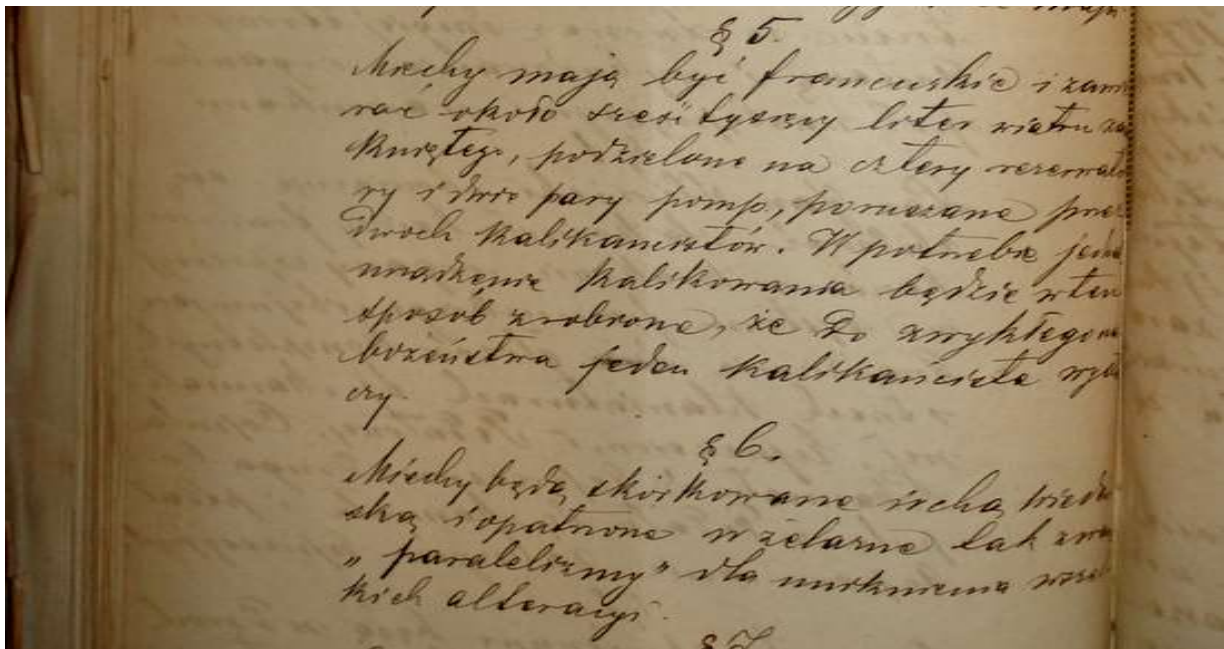 § 5.
Miechy mają być francuskie i zawie
rać około sześć tysięcy liter wiatru za
kniętego, podzielone na cztery rezerwato
ry i dwie pary pomp, poruszane przez
dwóch kalikancistów. W potrzebie jedn
urządzenie kalikowania będzie w ten
sposób zrobione, że do zwykłego na
bożeństwa jeden kalikancista wysta
czy.
§ 6.
Miechy będą skórkowane juchą wiedeń
ską i opatrzone w żelazne tak zwa
„paralelizmy" dla uniknienia wszel
kich alteracyi.
§ 7.